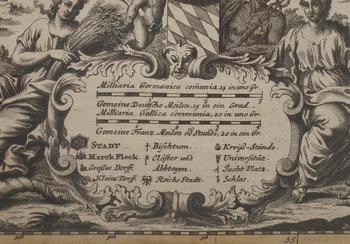 Milliaria Germanica comunia 15 in uno Gr.
Gemeine Deutsche Meilen, 15 in ein Grad.
Milliaria Gallica communia, 20 in uno Gr.
Gemeine Franz. Meilen od Stunde, 20 in ein Gr.
STADT † Bischtum. Kreiß-Stände.
Marck Fleck. Clöster und Universität.
Großes Dorff. Abbteyen. Jacht Platz.
Klein Dorff. Reichs Stadt. Schlos.
35